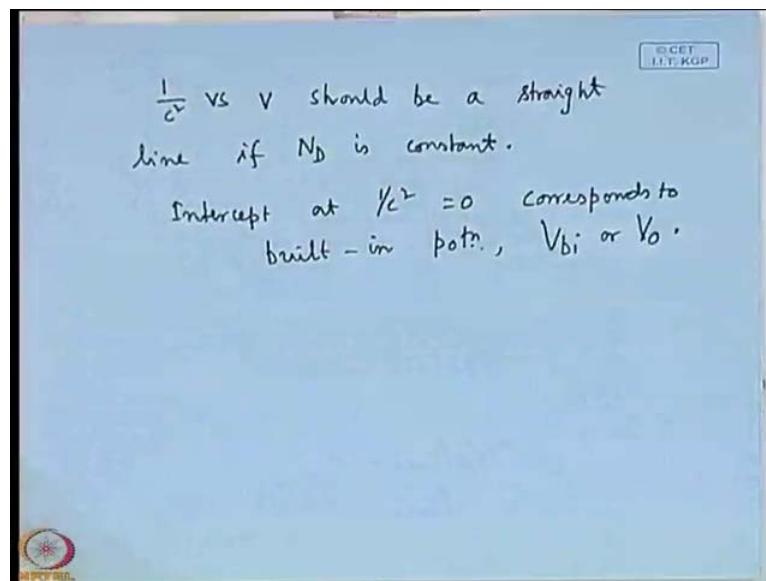 © CET
I.I.T. KGP
1/c² vs V should be a straight
line if N_D is constant.
Intercept at 1/c² = 0 corresponds to
built-in potn., V_bi or V_0.
NPTEL